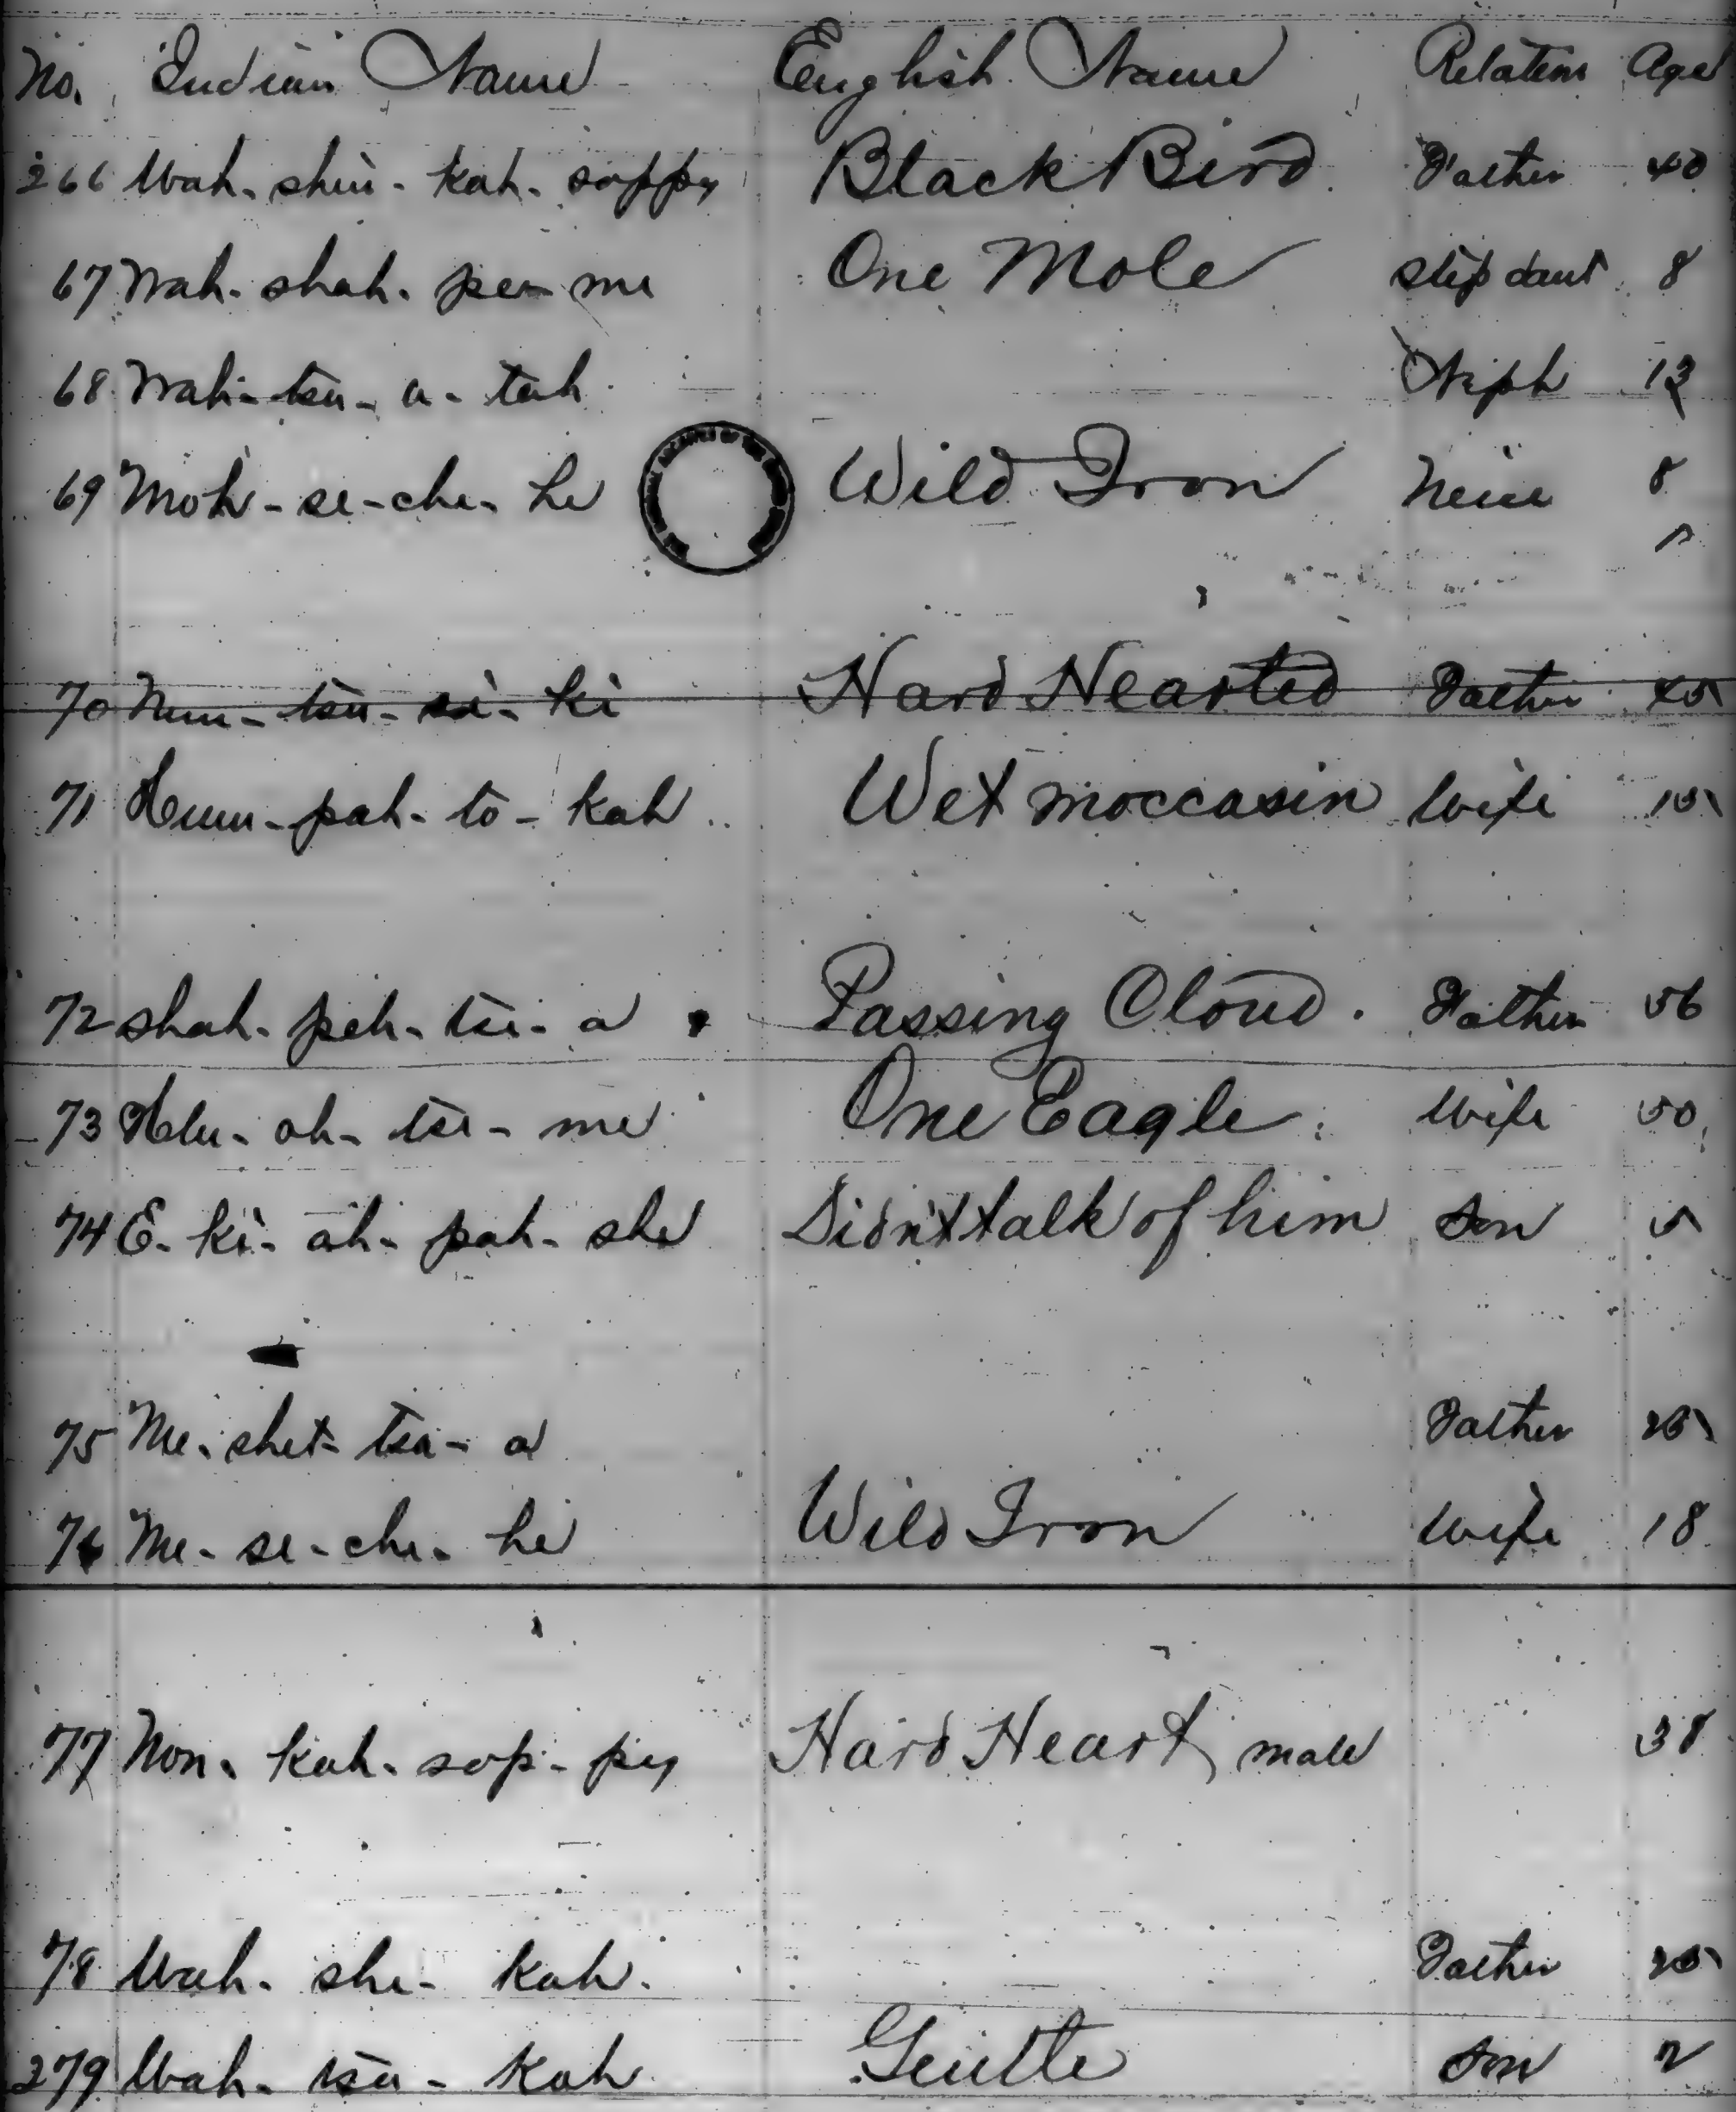 No. Indian Name English Name Relation Age
266 Wah- shin- kah- soppy Black Bird Father 40
67 Wah- shah- pee- me One Mole Step daut 8
68 Wah- tsa- a- tah Neph 13
69 Moh- se- che- he Wild Iron Neice 8
70 Num- tsa- si- ki Hard Hearted Father 45
71 Hum- pah- to- kah Wet moccasin Wife 15
72 Shah- peh- tsi- a Passing Cloud. Father 56
73 Hlu- ah- tsa- me One Eagle Wife 50
74 E- ki- ah- pah- she Didn't talk of him Son 5
75 Me- shet- tsa- a Father 25
76 Me- se- che- he Wild Iron Wife 18
77 Non- kah- sop- py Hard Heart, male 38
78 Wah- she- kah Father 25
279 Wah- tsa- kah Gentle Son 2